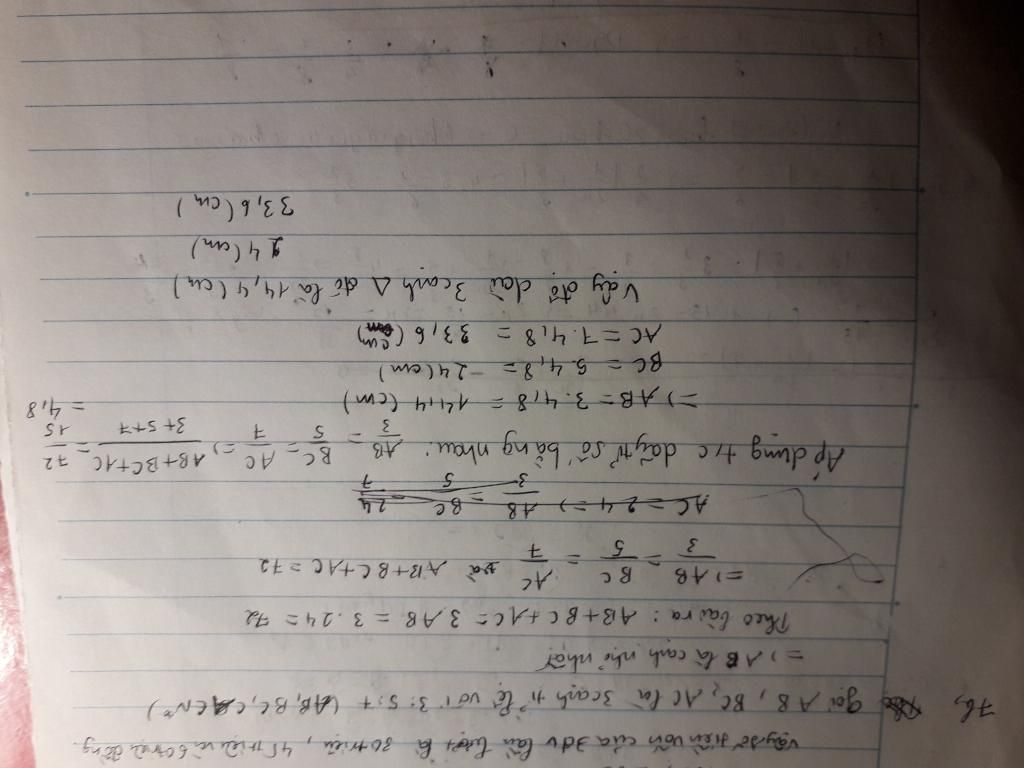 Vậy số tiền vốn của 3 đv lần lượt là 30 triệu, 45 triệu và 60 triệu đồng
76, Gọi AB, BC, AC là 3 cạnh tỉ lệ với 3:5:7 (AB, BC, CA ∈ N*)
=> AB là cạnh nhỏ nhất
Theo bài ra: AB + BC + AC = 3.AB = 3.24 = 72
=> AB/3 = BC/5 = AC/7 và AB + BC + AC = 72
AC = 24 => AB/3 = BC/5 = 24/7
Áp dụng t/c dãy tỉ số bằng nhau: AB/3 = BC/5 = AC/7 => AB+BC+AC/3+5+7 = 72/15
= 4,8
=> AB = 3.4,8 = 14,4 (cm)
BC = 5.4,8 = 24 (cm)
AC = 7.4,8 = 33,6 (cm)
Vậy độ dài 3 cạnh Δ đó là 14,4 (cm)
24 (cm)
33,6 (cm)